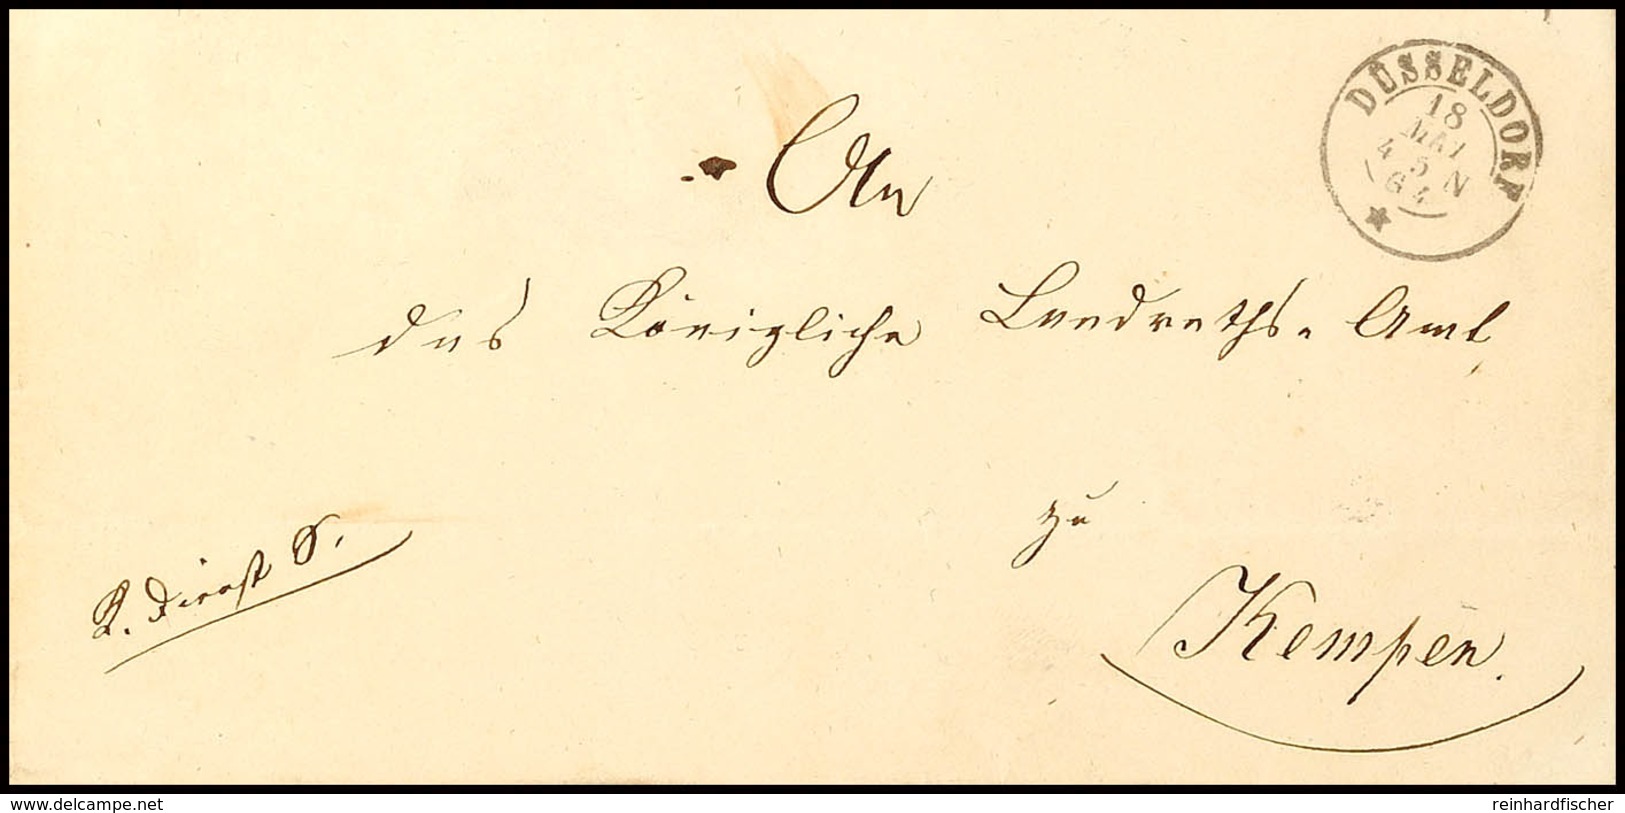 DÜSSELDORF
18
MAI
4 5 N
64
An
das Königliche Landraths-Amt
zu
Kempen.
K. Dienst S.
www.delcampe.net
reinhardfischer